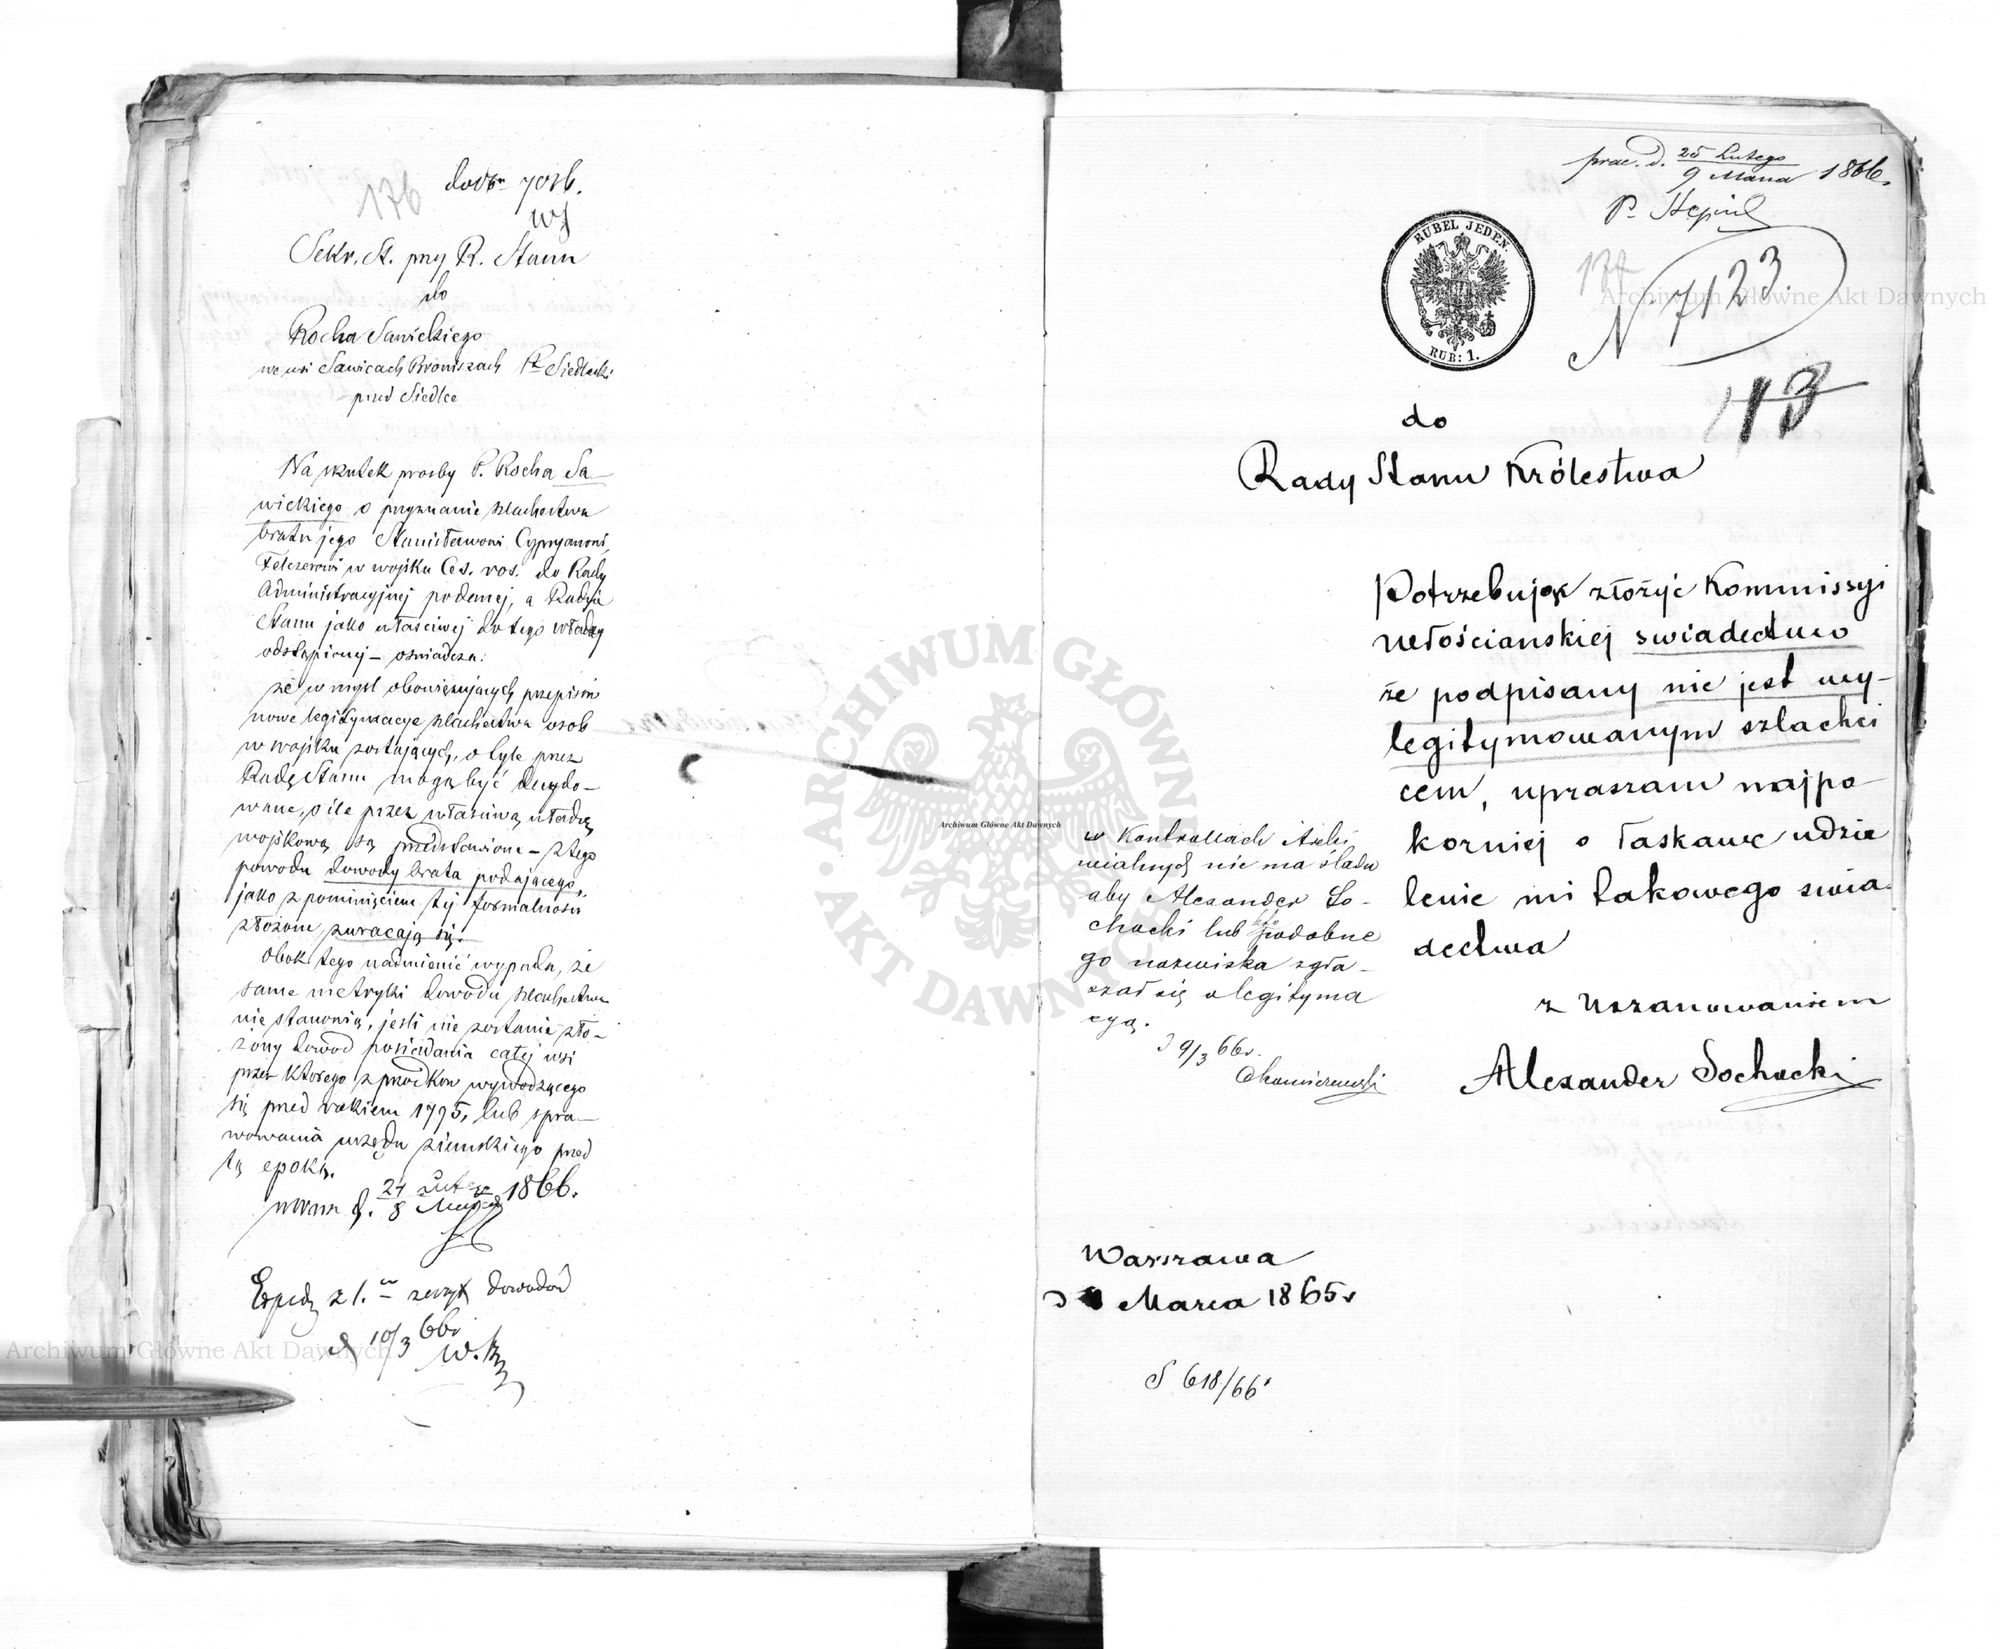 176
do Nru 7016.
Sekr. St. przy R. Stanu
do
Rocha Sawickiego
we wsi Sawicach Broniszach Pt Siedlecki
pred Siedlce
Na skutek prosby P. Rocha Sa-
wickiego o przyznanie szlachectwa
bratu jego Stanisławowi Cypryanowi,
Felczerowi w wojsku Ces. ros. do Rady
Administracyjnej podanej, a Radzie
Stanu jako właściwej do tego władzy
odstąpionej – oswiadcza:
że w mysl obowiązujących przepisów
nowe legitymacye szlachectwa osob
w wojsku zostających, o tyle przez
Radę Stanu mogą być decydo-
wane, o ile przez właściwą władzę
wojskową są przedstawione – z tego
powodu dowody brata podającego,
jako z pominięciem tej formalności
złożone zwracają się.
Obok tego nadmienić wypada, że
same metryki dowodu szlachectwa
nie stanowią, jeśli nie zostanie zło-
żony dowod posiadania całej wsi
przez ktorego z przodkow wywodzącego
się przed rokiem 1795, lub spra-
wowania urzędu ziemskiego przed
tą epoką.
d. 24 Lutego 1866.
8 Marca
Exped. z 1. zeszyt dowodów
d 10/3 66r
prac. d. 25 Lutego 1866.
9 Marca
P.
RUBEL JEDEN.
RUB: 1.
177
N 7123.
113
do
Rady Stanu Królestwa
Potrzebując złożyć Kommissyi
Włościanskiej swiadectwo
że podpisany nie jest wy-
legitymowanym szlachci
cem, upraszam najpo-
korniej o łaskawe udzie
lenie mi takowego swia-
dectwa
z uszanowaniem
Alexander Sochacki
w Kontrollach Archi
wialnych nie ma śladu
aby Alexander So-
chacki lub kto podobne
go nazwiska zgła-
szał się o legityma
cyą.
d 9/3 66r.
Warszawa
d Marca 1865r
S 618/66
ARCHIWUM GŁÓWNE
AKT DAWNYCH
Archiwum Główne Akt Dawnych
Archiwum Główne Akt Dawnych
Archiwum Główne Akt Dawnych